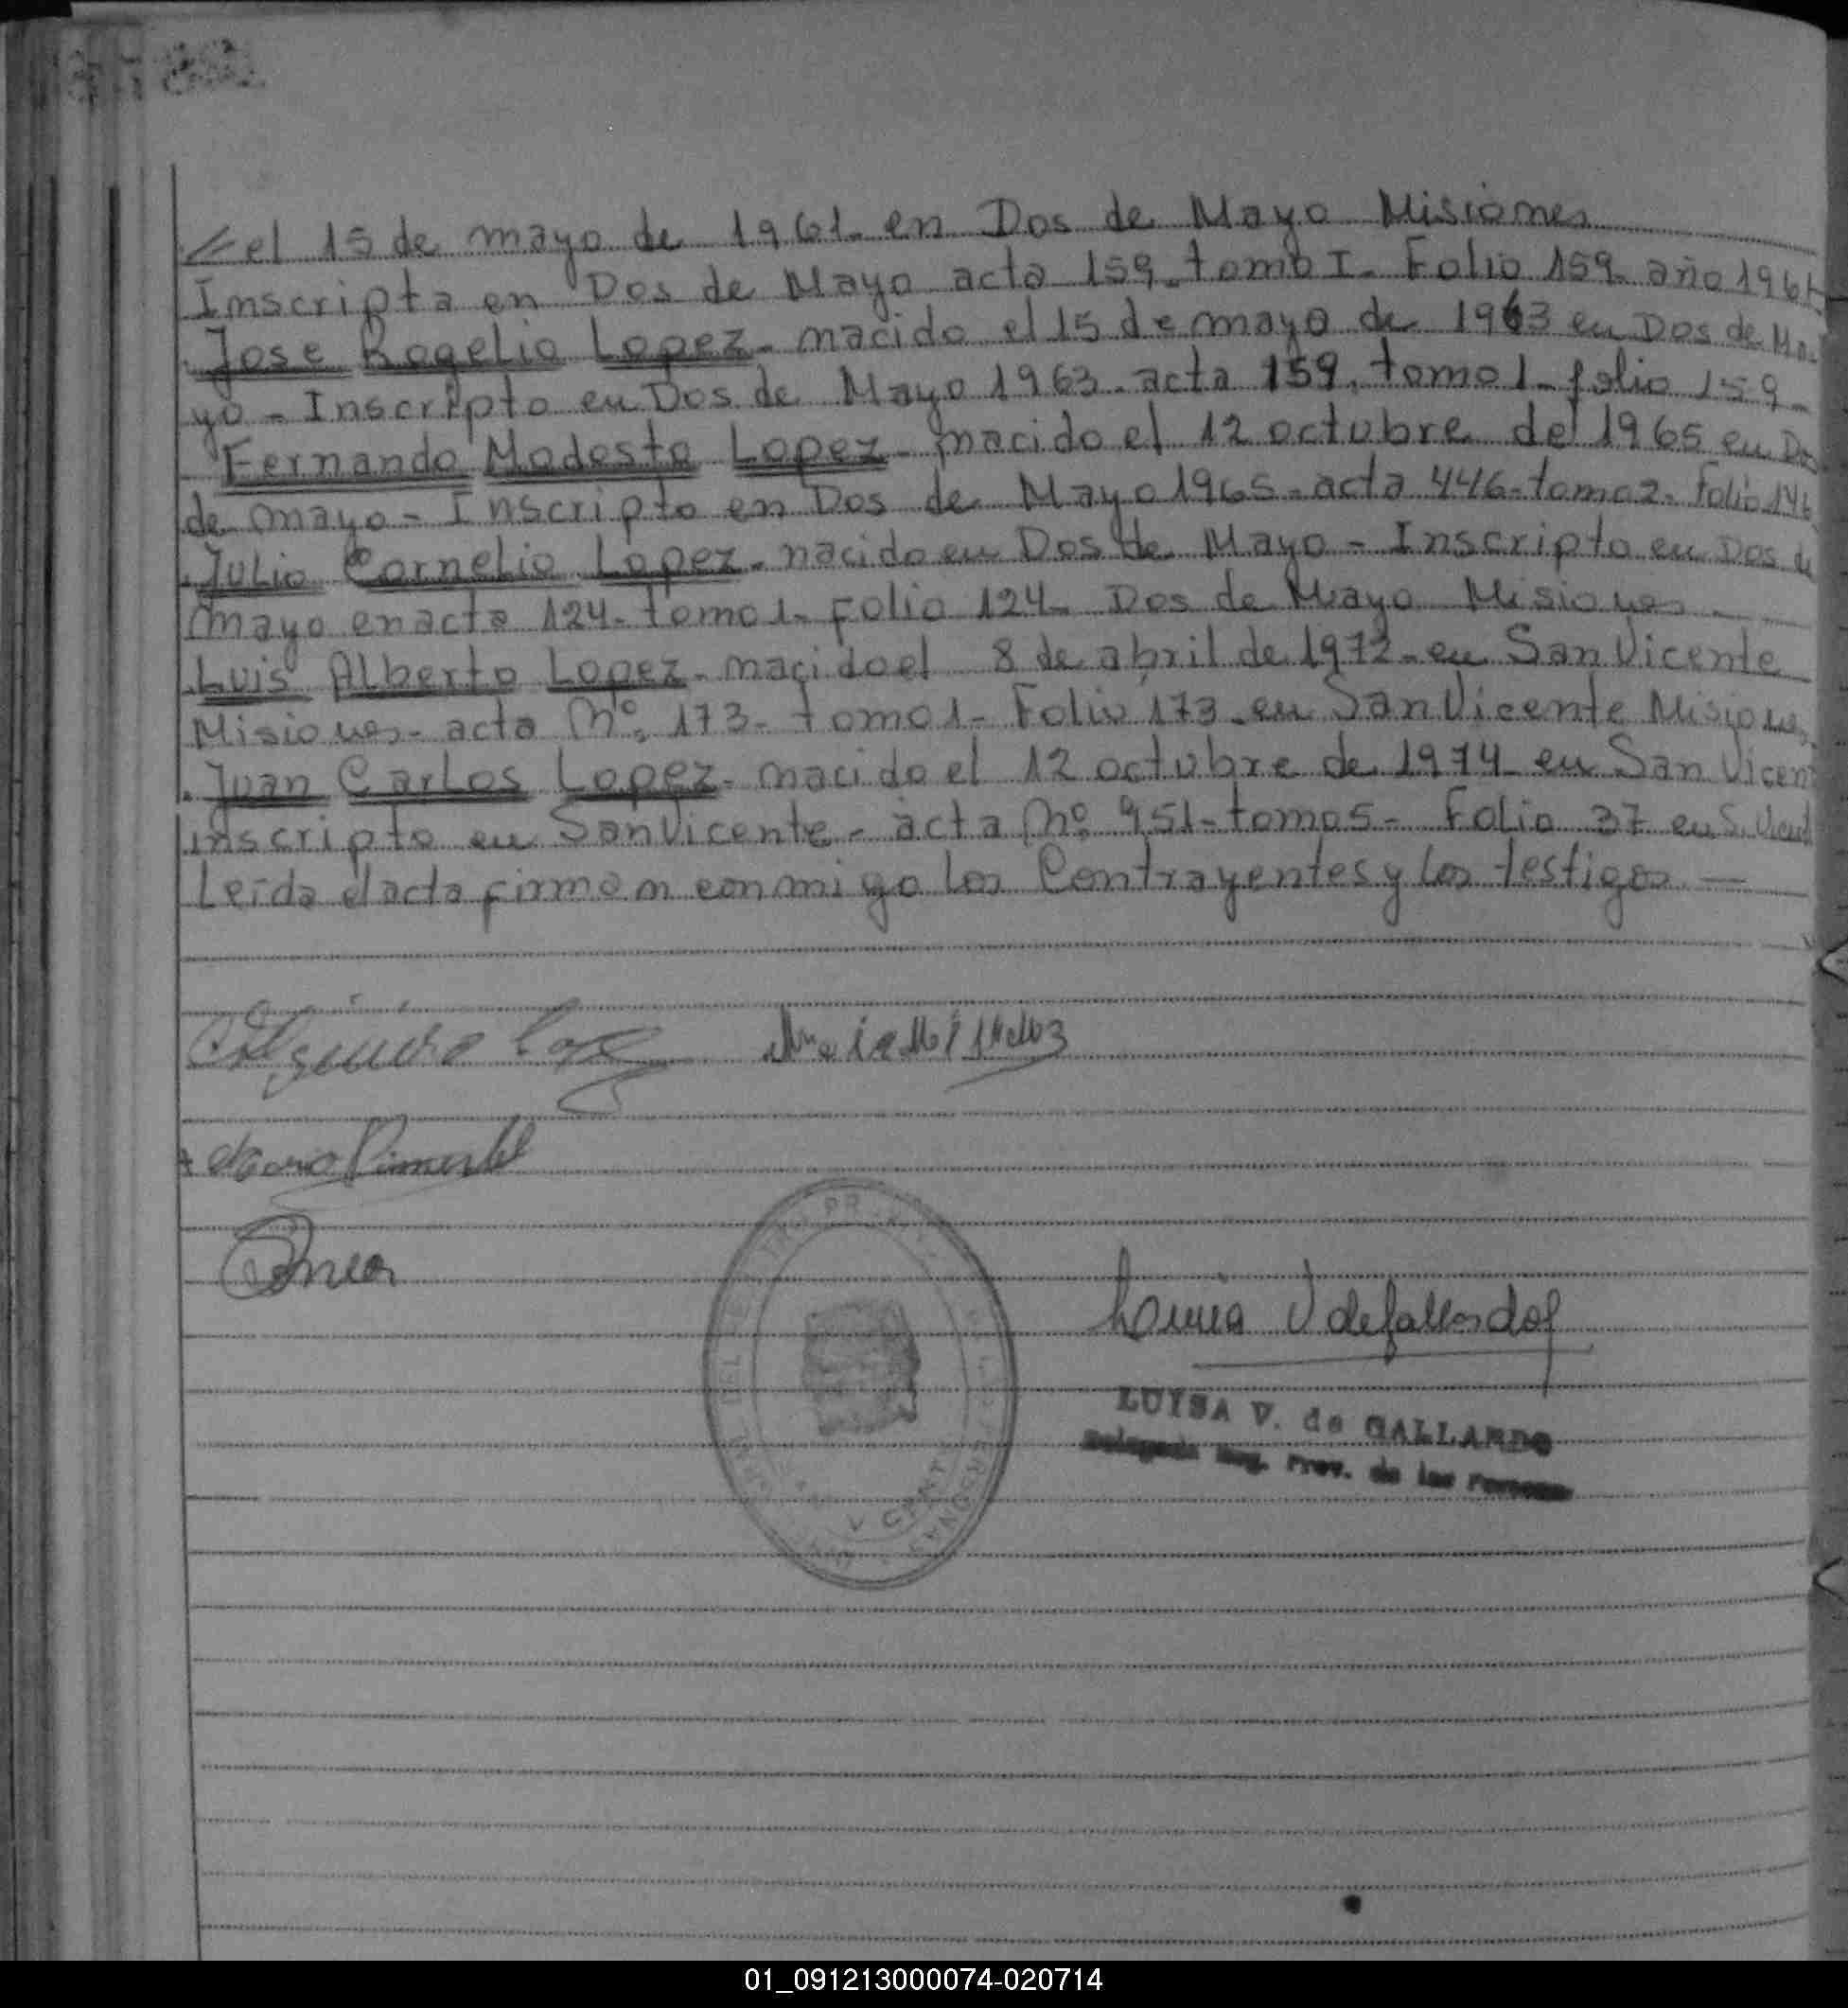 el 15 de mayo de 1961. en Dos de Mayo Misiones
Inscripta en Dos de Mayo acta 159. tomo I. Folio 159. año 1961
Jose Rogelio Lopez. nacido el 15 de mayo de 1963 en Dos de Ma-
yo - Inscripto en Dos de Mayo 1963. acta 159. tomo 1 - folio 159 -
Fernando Modesto Lopez - nacido el 12 octubre del 1965 en Dos
de mayo - Inscripto en Dos de Mayo 1965 - acta 446 - tomo 2. Folio 146
Julio Cornelio Lopez. nacido en Dos de Mayo - Inscripto en Dos de
mayo en acta 124. tomo 1. Folio 124. Dos de Mayo Misiones
Luis Alberto Lopez. nacido el 8 de abril de 1972 - en San Vicente
Misiones. acta Nº. 173 - tomo 1 - Folio 173. en San Vicente Misiones
Juan Carlos Lopez. nacido el 12 octubre de 1974 en San Vicen
inscripto en San Vicente - acta Nº 951 - tomo 5 - Folio 37 en S. Vicente
Leida el acta firman conmigo los Contrayentes y los testigos —
Luisa V de Gallardo
LUISA V. de GALLARDO
Delegada Reg. Prov. de las Personas
01_091213000074-020714